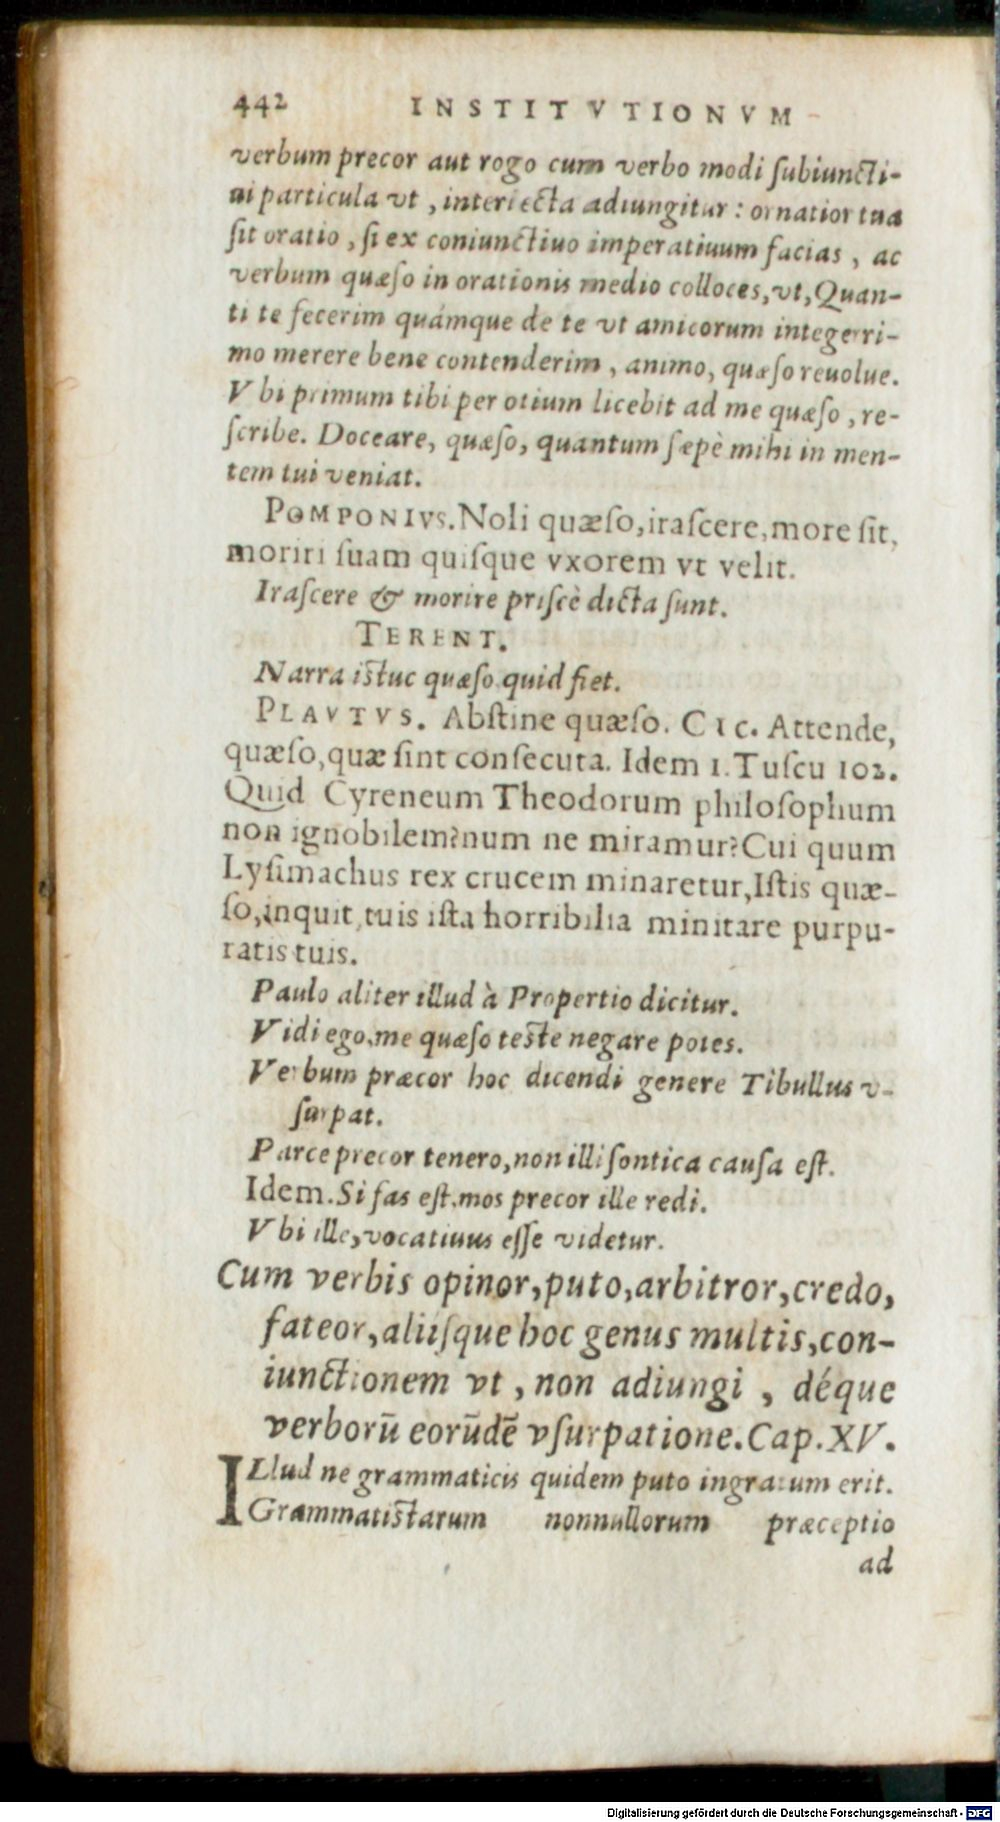 442 INSTITVTIONVM
verbum precor aut rogo cum verbo modi ſubiuncti-
ui particula vt, interiecta adiungitur: ornatior tua
ſit oratio, ſi ex coniunctiuo imperatiuum facias, ac
verbum quæſo in orationis medio colloces, vt, Quan-
ti te fecerim quámque de te vt amicorum integerri-
mo merere bene contenderim, animo, quæſo reuolue.
Vbi primum tibi per otium licebit ad me quæſo, re-
ſcribe. Doceare, quæſo, quantum ſæpè mihi in men-
tem tui veniat.
POMPONIVS. Noli quæſo, iraſcere, more fit,
moriri ſuam quiſque vxorem vt velit.
Iraſcere & morire priſcè dicta ſunt.
TERENT.
Narra iſtuc quæſo, quid fiet.
PLAVTVS. Abſtine quæſo. CIC. Attende,
quæſo, quæ ſint conſecuta. Idem 1. Tuſcu 102.
Quid Cyreneum Theodorum philoſophum
non ignobilem? num ne miramur? Cui quum
Lyſimachus rex crucem minaretur, Iſtis quæ-
ſo, inquit, tuis iſta horribilia minitare purpu-
ratis tuis.
Paulo aliter illud à Propertio dicitur.
Vidi ego, me quæſo teſte negare potes.
Verbum præcor hoc dicendi genere Tibullus v-
ſurpat.
Parce precor tenero, non illi ſontica cauſa eſt.
Idem. Si fas eſt, mos precor ille redi.
Vbi ille, vocatiuus eſſe videtur.
Cum verbis opinor, puto, arbitror, credo,
fateor, aliiſque hoc genus multis, con-
iunctionem vt, non adiungi, déque
verborū eorūdē vſurpatione. Cap. XV.
ILlud ne grammaticis quidem puto ingratum erit.
Grammatiſtarum nonnullorum præceptio
ad
Digitalisierung gefördert durch die Deutsche Forschungsgemeinschaft - DFG